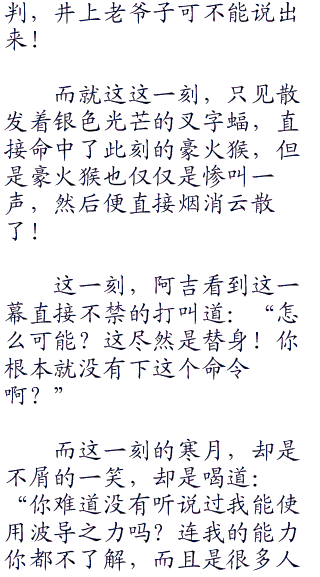 判，井上老爷子可不能说出
来！
而就这这一刻，只见散
发着银色光芒的叉字蝠，直
接命中了此刻的豪火猴，但
是豪火猴也仅仅是惨叫一
声，然后便直接烟消云散
了！
这一刻，阿吉看到这一
幕直接不禁的打叫道：“怎
么可能？这尽然是替身！你
根本就没有下这个命令
啊？”
而这一刻的寒月，却是
不屑的一笑，却是喝道：
“你难道没有听说过我能使
用波导之力吗？连我的能力
你都不了解，而且是很多人